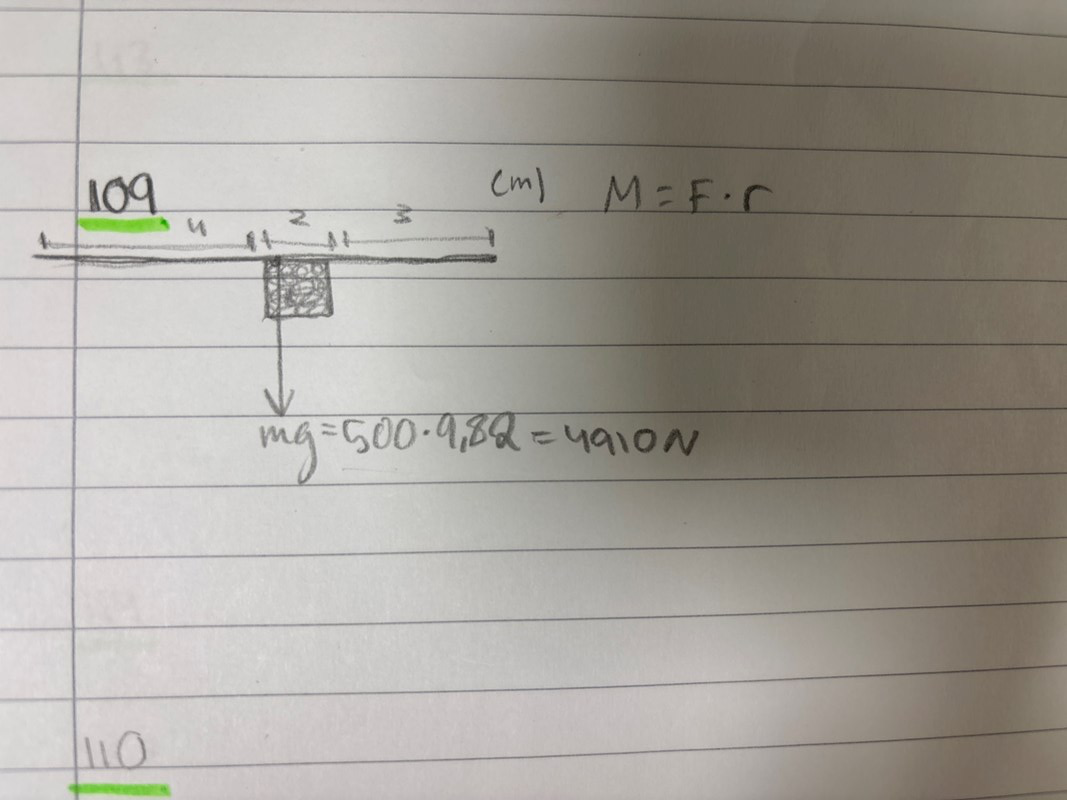 109 (m) M = F · r
4 2 3
mg = 500 · 9,82 = 4910 N
110